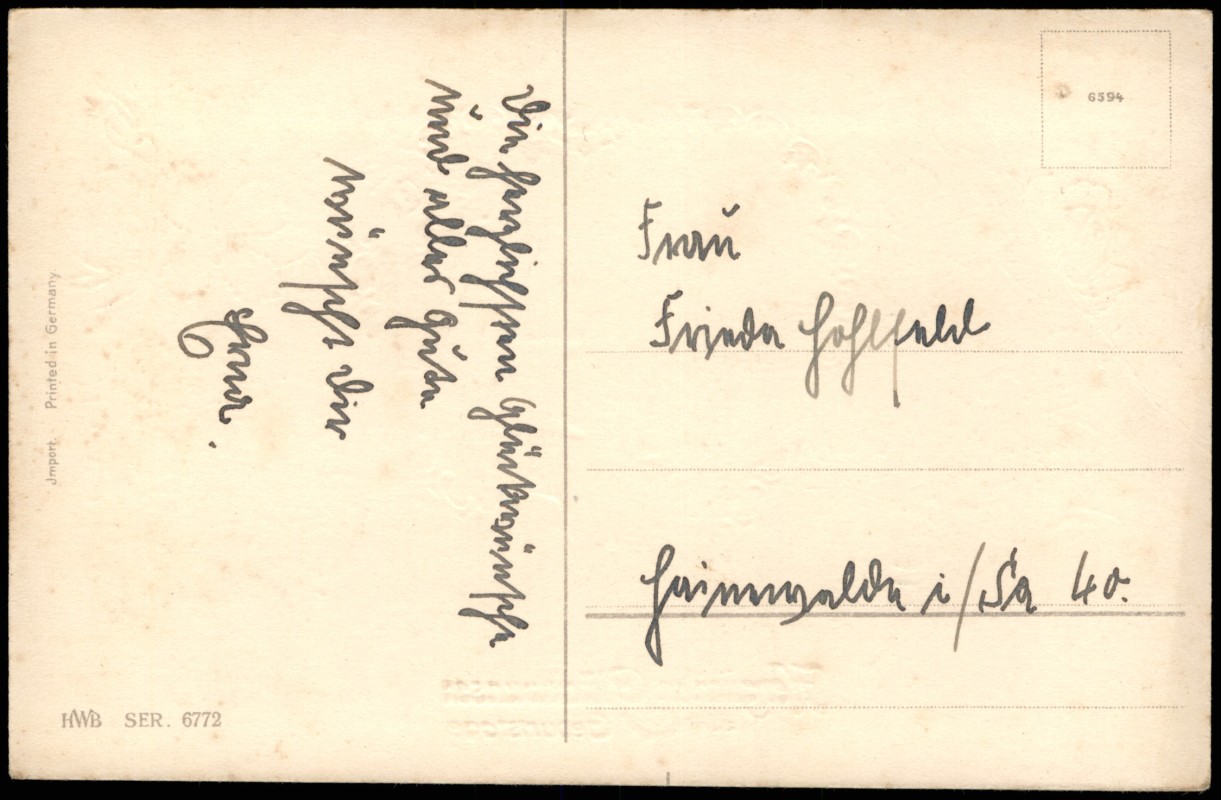 Die herzlichsten Glückwünsche
und alles Gute
wünscht Dir
Frau
Frieda Hohlfeld
Hainewalde i/Sa 40.
6594
Jmport. Printed in Germany
HWB SER. 6772
Herzlichen Glückwunsch
zum Geburtstage